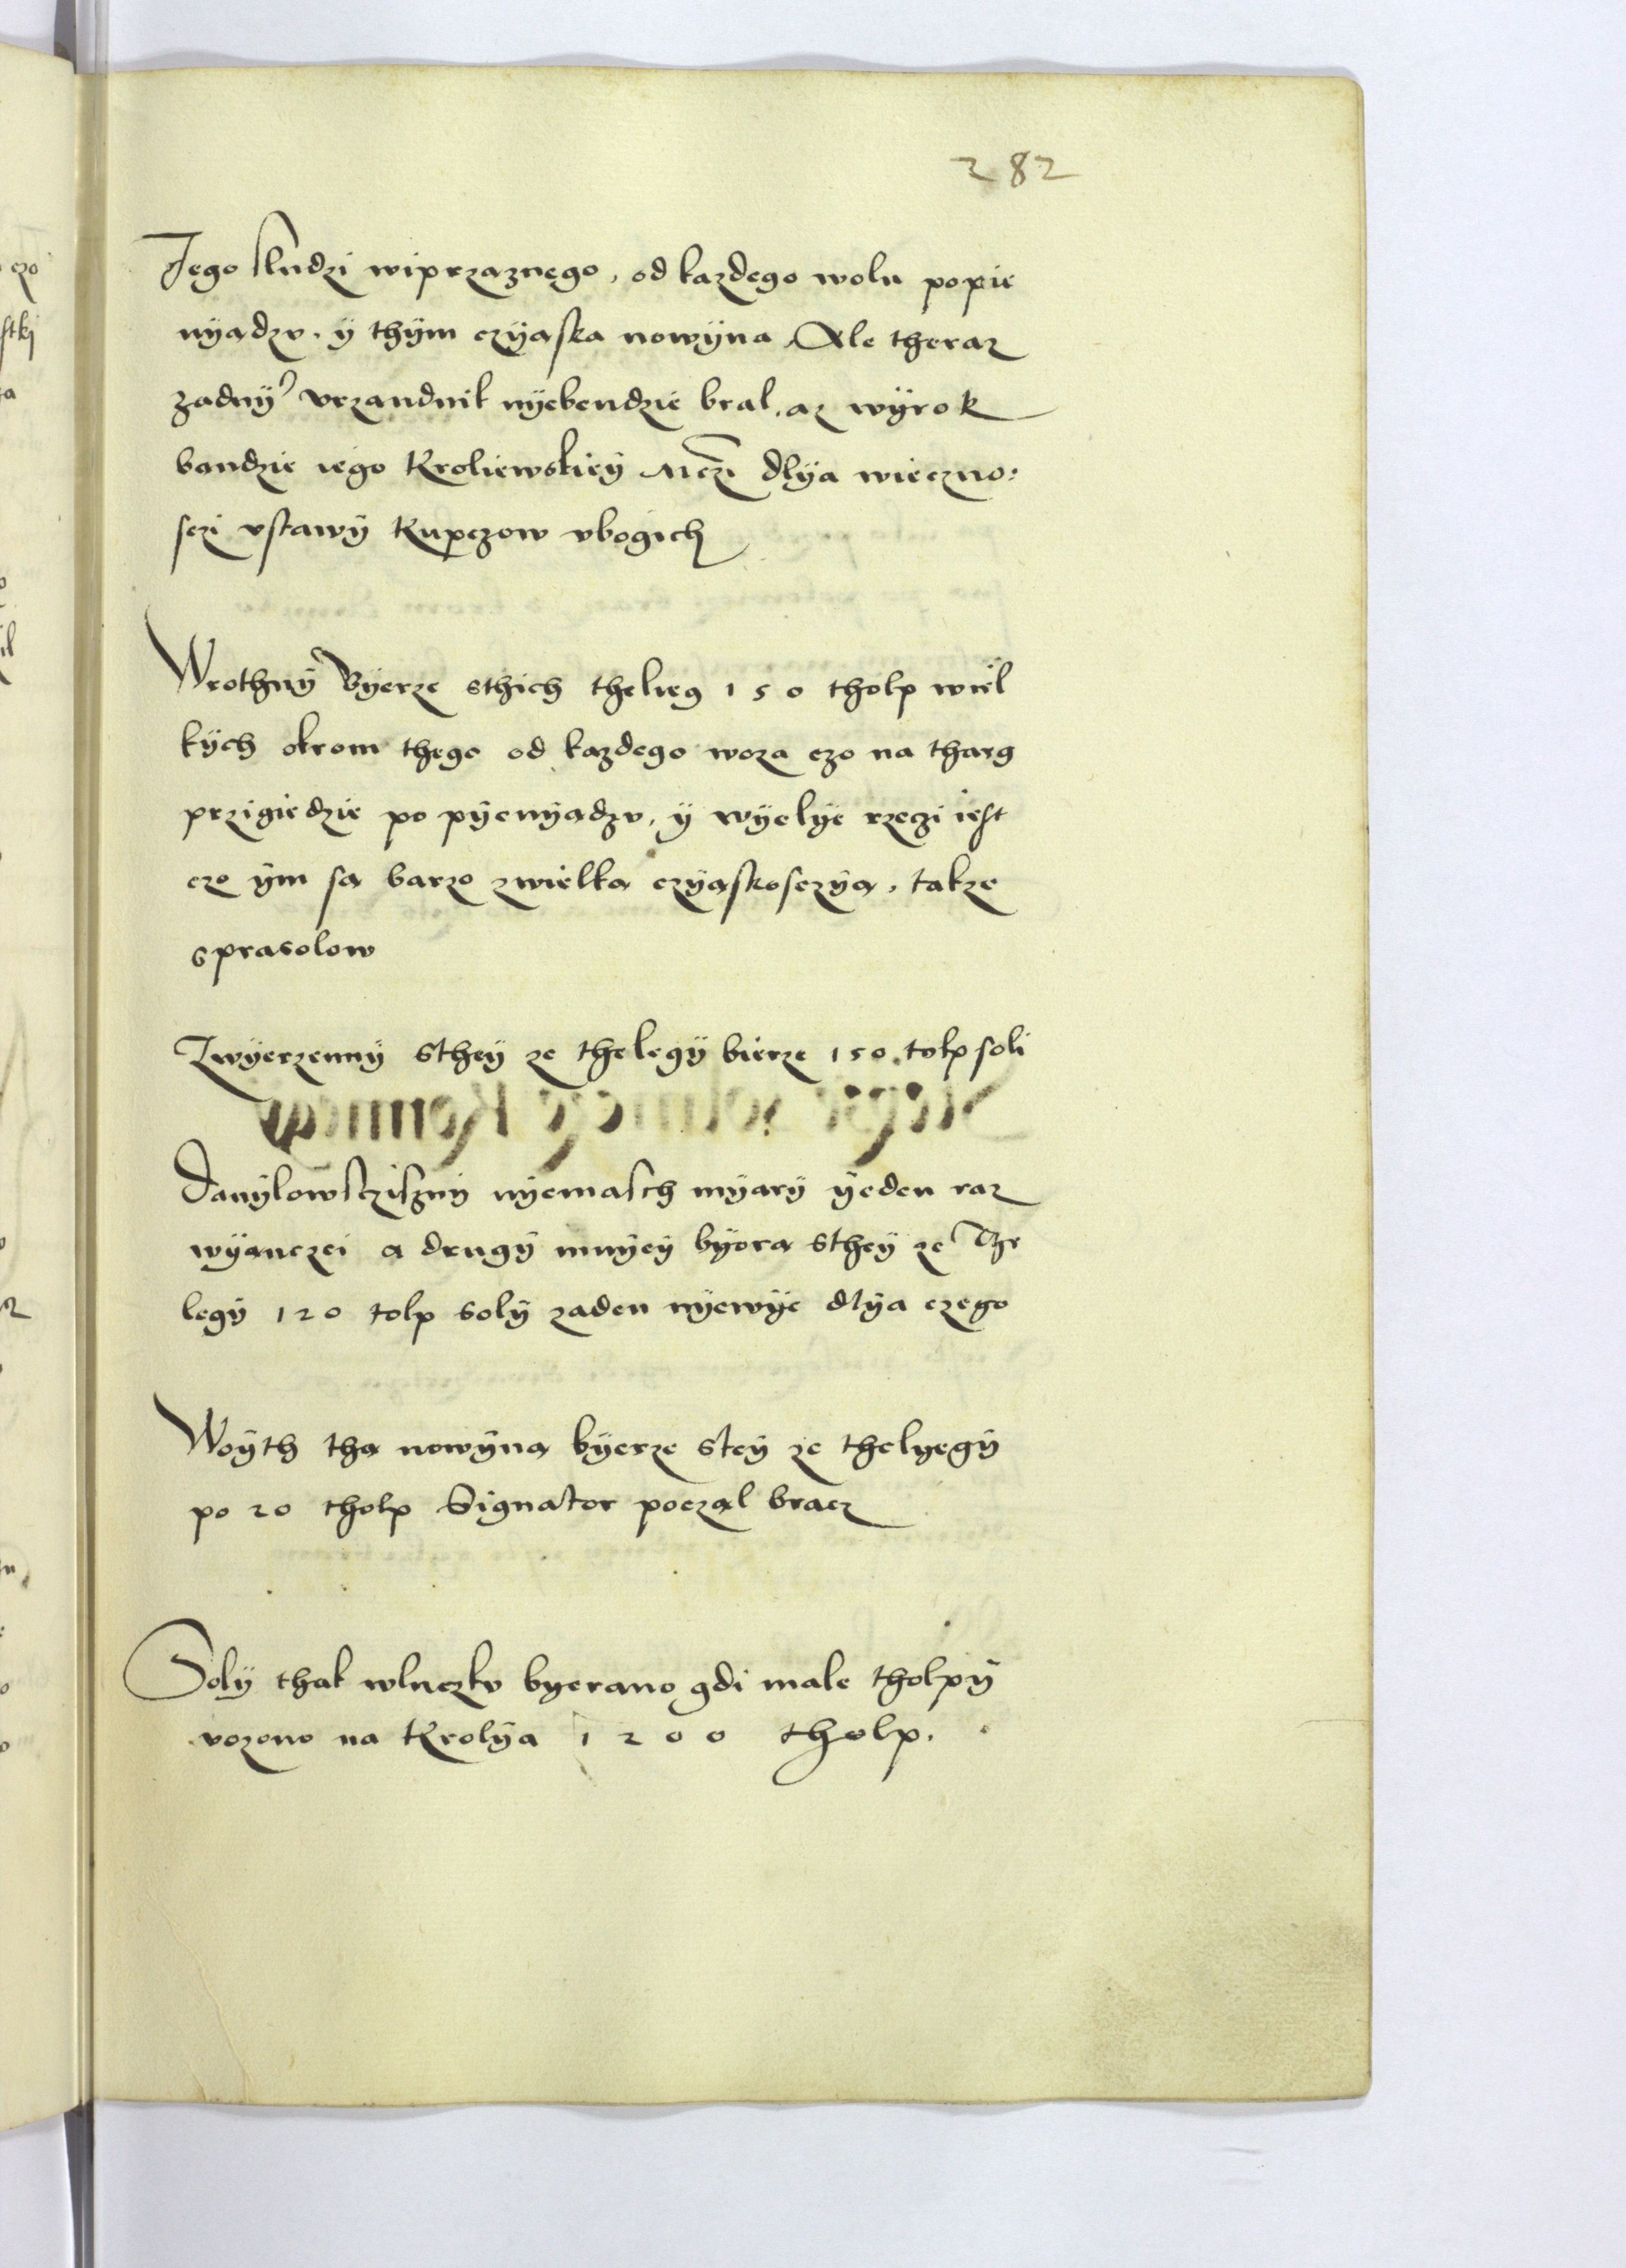 282
Jego sludzi wiprzaznego, od kazdego wolu popie
nÿadzv. ÿ thÿm czÿaska nowÿna Ale theraz
zadnÿ vrzandnik nÿebendzie bral, az wÿrok
bandzie iego Kroliewskieÿ Mczi dlÿa wieczno:
sczi vstawÿ Kupczow vbogich
Wrothnÿ Bÿerze sthich thelieg 150 tholp wiel
kÿch okrom thego od kazdego woza czo na tharg
przigiedzie po pÿenÿadzv, ÿ wÿelÿe rzeczi iest
czo ÿm sa barzo zwielka czÿaskosczÿa, takze
sprasolow
Zwÿerzennÿ stheÿ ze thelegÿ bierze 150 tolp soli
Danÿlowscziznÿ nÿemasch mÿarÿ ÿeden raz
wÿanczei a drugÿ mnÿeÿ bÿora stheÿ ze The
legÿ 120 tolp solÿ zaden nÿewÿe dlÿa czego
Woÿth tha nowÿna bÿerze steÿ ze thelÿegÿ
po 20 tholp Signator poczal bracz
Solÿ thak wluczkv byerano gdi male tholpÿ
vozono na Krolÿa 1200 tholp.